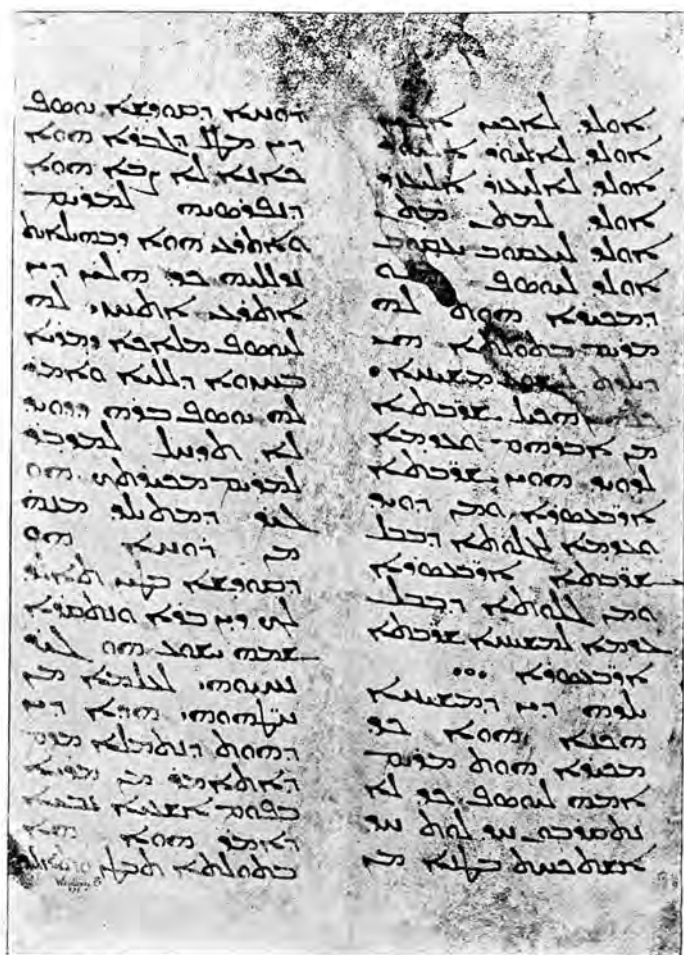 ܐܘܠܕ ܠܐܟܝܢ ܐܟܝܢ
ܐܘܠܕ ܠܐܠܝܘܕ ܐܠܝܘܕ
ܐܘܠܕ ܠܐܠܝܥܙܪ ܐܠܝܥܙܪ
ܐܘܠܕ ܠܡܬܢ ܡܬܢ
ܐܘܠܕ ܠܝܥܩܘܒ ܝܥܩܘܒ
ܐܘܠܕ ܠܝܘܣܦ ܗܘ
ܕܡܟܝܪܐ ܗܘܬ ܠܗ
ܡܪܝܡ ܒܬܘܠܬܐ ܗܝ
ܕܝܠܕܬ ܠܝܫܘܥ ܡܫܝܚܐ
ܗܟܝܠ ܫܪ̈ܒܬܐ
ܡܢ ܐܒܪܗܡ ܥܕܡܐ
ܠܕܘܝܕ ܗܘܝܢ ܫܪ̈ܒܬܐ
ܐܪ̈ܒܥܣܪܐ ܘܡܢ ܕܘܝܕ
ܥܕܡܐ ܠܓܠܘܬܐ ܕܒܒܠ
ܫܪ̈ܒܬܐ ܐܪ̈ܒܥܣܪܐ
ܘܡܢ ܓܠܘܬܐ ܕܒܒܠ
ܥܕܡܐ ܠܡܫܝܚܐ ܫܪ̈ܒܬܐ
ܐܪ̈ܒܥܣܪܐ
ܝܠܕܗ ܕܝܢ ܕܡܫܝܚܐ
ܗܟܢܐ ܗܘܐ ܟܕ
ܡܟܝܪܐ ܗܘܬ ܡܪܝܡ
ܐܡܗ ܠܝܘܣܦ ܟܕ ܠܐ
ܚܕ ܠܘܬ ܚܕ
ܐܫܬܟܚܬ ܒܛܢܐ ܡܢ
ܪܘܚܐ ܕܩܘܕܫܐ ܝܘܣܦ
ܕܝܢ ܡܛܠ ܕܓܒܪܐ ܗܘܐ
ܟܐܢܐ ܠܐ ܨܒܐ ܗܘܐ
ܕܢܦܪܣܝܗ ܠܡܪܝܡ
ܘܐܬܪܥܝ ܗܘܐ
ܟܕ ܗܠܝܢ ܕܝܢ
ܐܬܪܥܝ ܐܬܚܙܝ ܠܗ
ܠܝܘܣܦ ܡܠܐܟܐ ܕܡܪܝܐ
ܒܚܙܘܐ ܕܠܠܝܐ ܘܐܡܪ
ܠܗ ܝܘܣܦ ܒܪܗ ܕܕܘܝܕ
ܠܐ ܬܕܚܠ ܠܡܕܒܪܘ
ܠܡܪܝܡ ܡܟܝܪܬܟ ܗܘ
ܓܝܪ ܕܡܬܝܠܕ ܡܢܗ
ܡܢ ܪܘܚܐ ܗܘ
ܕܩܘܕܫܐ ܒܛܝܢ ܬܐܠܕ
ܠܟ ܕܝܢ ܒܪܐ ܘܬܬܩܪܐ
ܫܡܗ ܝܫܘܥ ܗܘ ܓܝܪ
ܢܚܝܘܗܝ ܠܥܠܡܐ ܡܢ
ܚܛܗܘܗܝ ܗܕܐ ܕܝܢ
ܕܗܘܬ ܕܬܬܡܠܐ ܡܕܡ
ܕܐܬܐܡܪ ܡܢ ܡܪܝܐ
ܒܦܘܡ ܐܫܥܝܐ ܢܒܝܐ
ܕܐܡܪ ܗܘܐ ܗܐ
ܒܬܘܠܬܐ ܬܒܛܢ ܘܬܐܠܕ